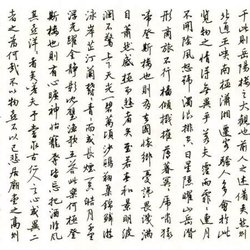 千此則岳陽樓之大觀也前人之述備矣然則
北通巫峽南極瀟湘遷客騷人多會於此
覽物之情得無異乎若夫霪雨霏霏連月
不開陰風怒號濁浪排空日星隱曜山岳潛
形商旅不行檣傾楫摧薄暮冥冥虎嘯猿
啼登斯樓也則有去國懷鄉憂讒畏譏滿
目蕭然感極而悲者矣至若春和景明波
瀾不驚上下天光一碧萬頃沙鷗翔集錦鱗游
泳岸芷汀蘭郁郁青青而或長煙一空皓月千里
浮光躍金靜影沉璧漁歌互答此樂何極
登斯樓也則有心曠神怡寵辱偕忘把酒臨風
其喜洋洋者矣嗟夫予嘗求古仁人之心或異二
者之為何哉不以物喜不以己悲居廟堂之高則